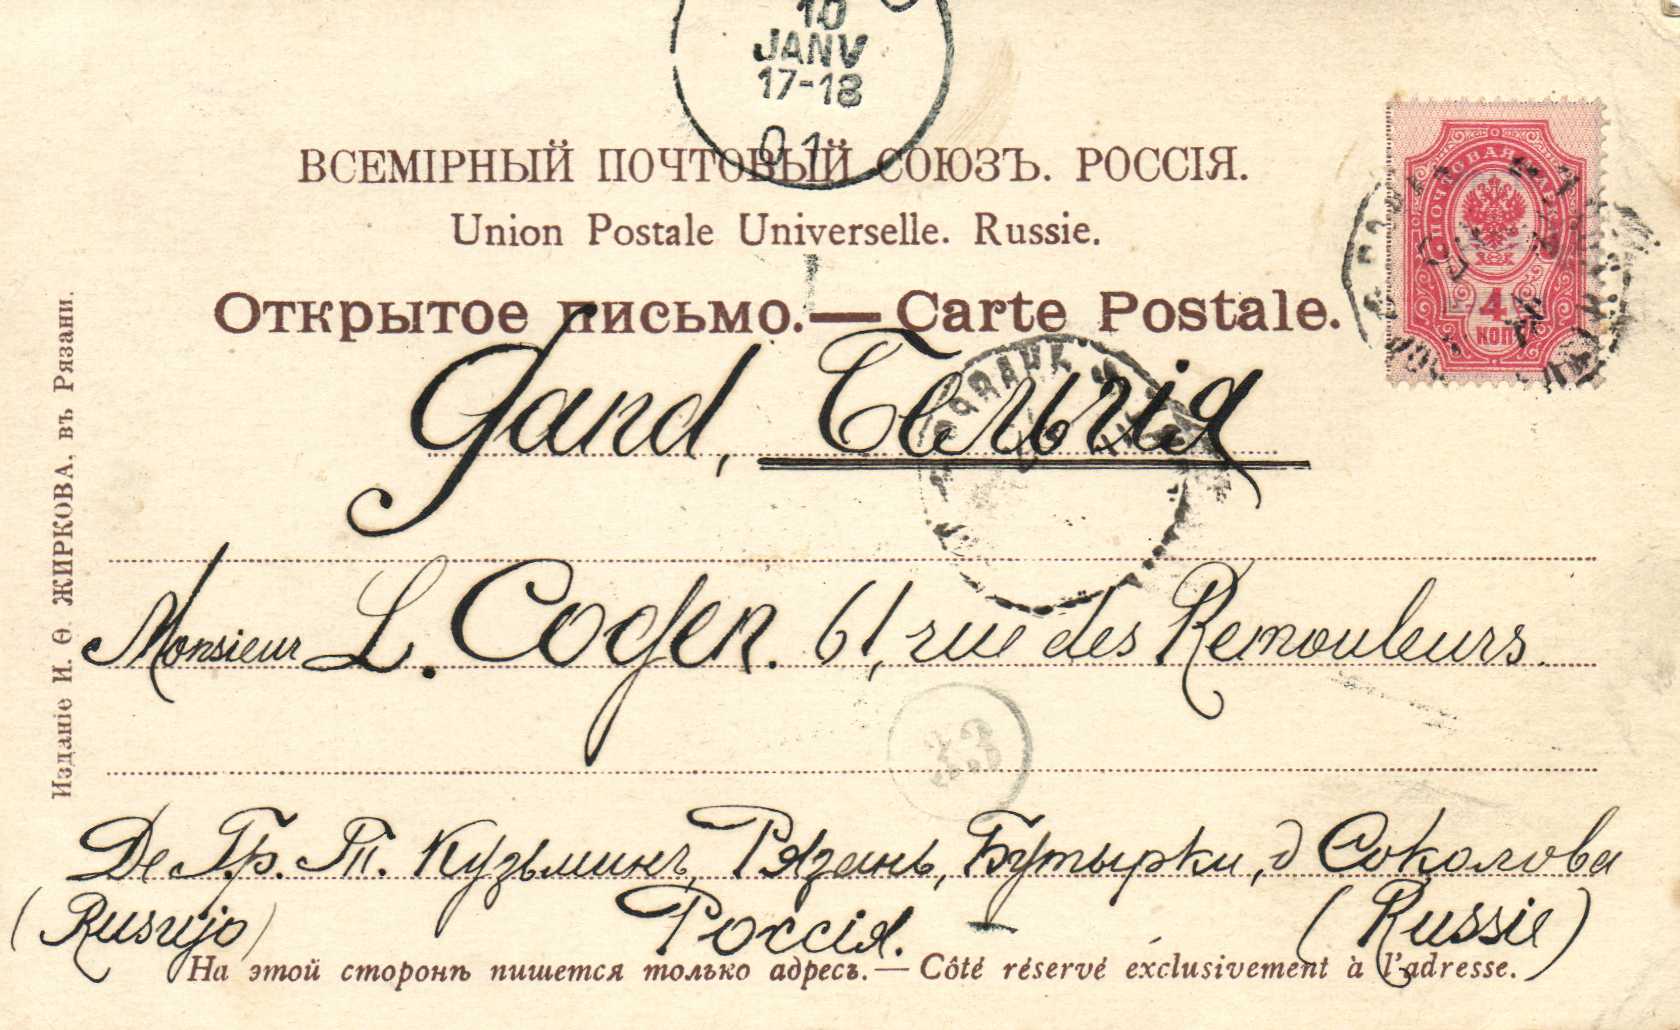 10
JANV
17-18
01
ВСЕМІРНЫЙ ПОЧТОВЫЙ СОЮЗЪ. РОССІЯ.
Union Postale Universelle. Russie.
Открытое письмо.— Carte Postale.
ПОЧТОВАЯ МАРКА
4
КОП
Gand, Бельгія
Monsieur L. Cogen. 61, rue des Remouleurs.
33
De Гр. П. Кузьминъ, Рязань, Бутырки, д Соколова
(Rusujo) Россія. — (Russie)
На этой сторонѣ пишется только адресъ.— Côté réservé exclusivement à l'adresse.
Изданіе И. Ѳ. ЖИРКОВА, въ Рязани.